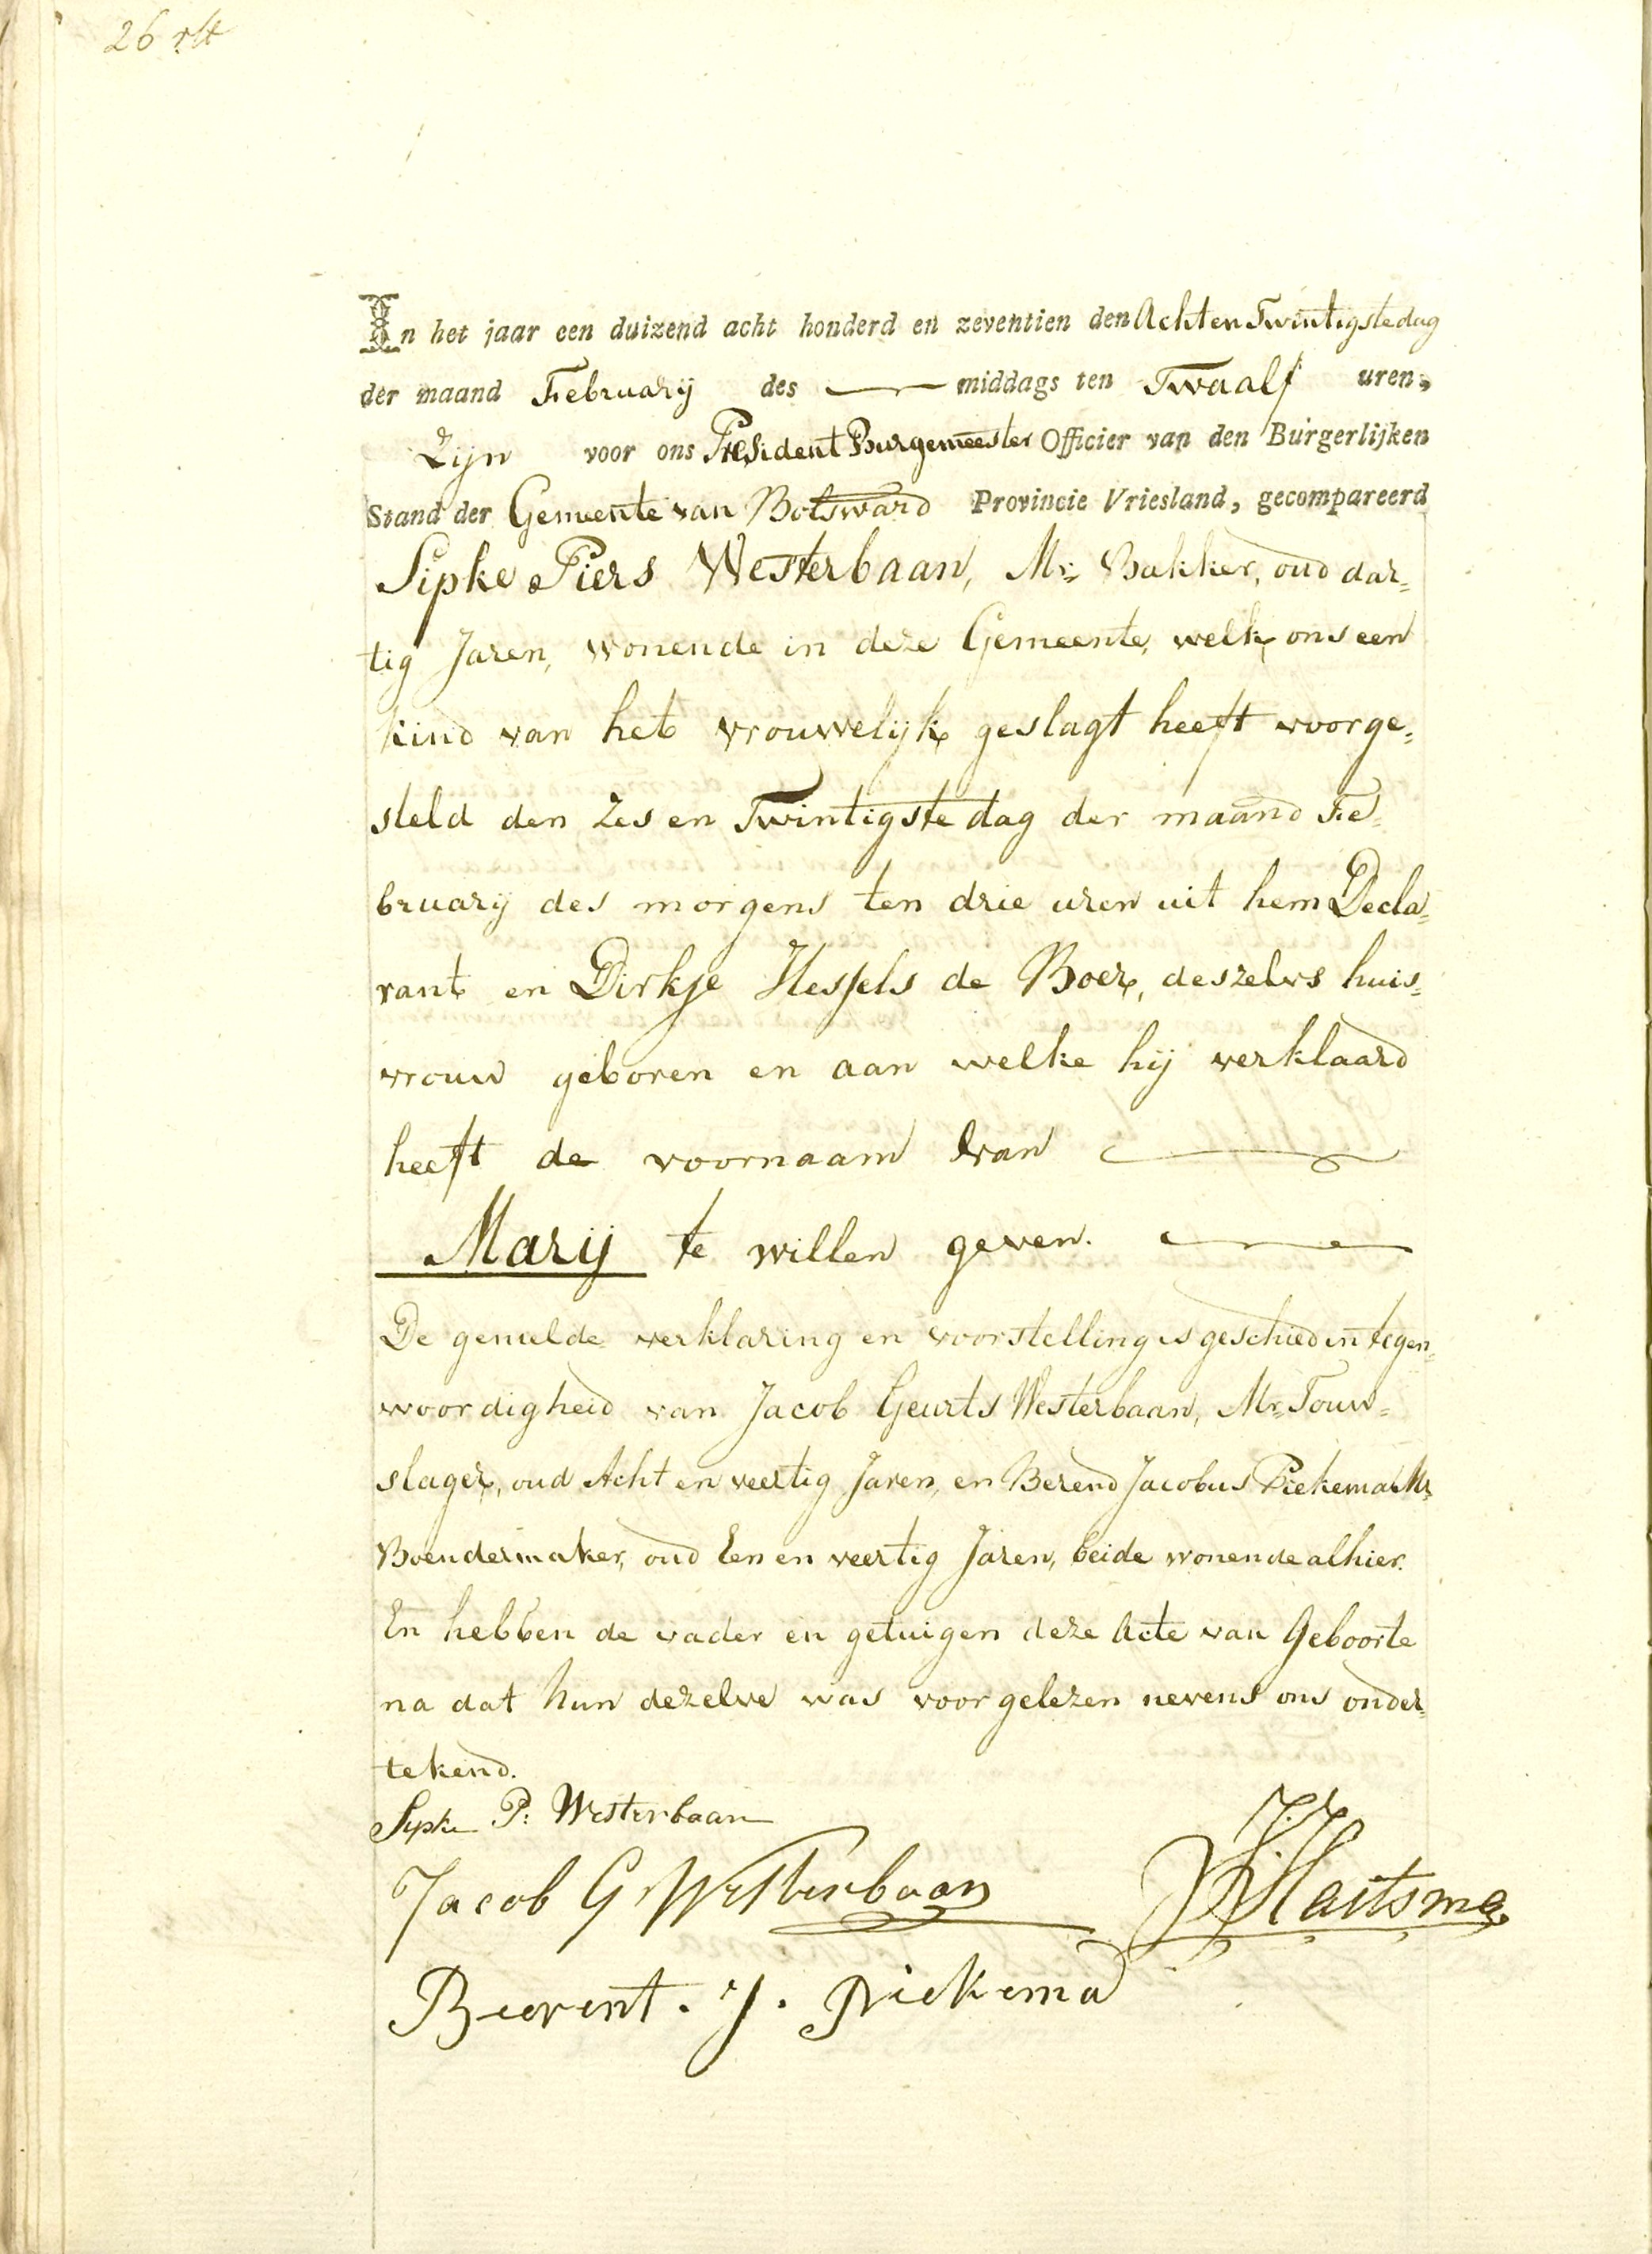 26
In het jaar een duizend acht honderd en zeventien den Acht en Twintigste dag
der maand February des middags ten Twaalf uren,
Zijn voor ons President Burgemeester Officier van den Burgerlijken
Stand der Gemeente van Bolsward Provincie Vriesland, gecompareerd
Sipke Piers Westerbaan, Mr. Bakker, oud dar=
tig Jaren, wonende in deze Gemeente, welke ons een
kind van het vrouwelijk geslagt heeft voorge=
steld den Zes en Twintigste dag der maand Fe=
bruary des morgens ten drie uren uit hem Decla=
rant en Dirkje Hessels de Boer, deszelvs huis=
vrouw geboren en aan welke hij verklaard
heeft de voornaam van
Marij te willen geven.
De gemelde verklaring en voorstelling is geschied in tegen=
woordigheid van Jacob Geurts Westerbaan, Mr. Touw=
slager, oud Acht en veertig Jaren, en Berend Jacobus Piekema Mr.
Boendermaker, oud Een en veertig Jaren, beide wonende alhier.
En hebben de vader en getuigen deze Acte van Geboorte
na dat hun dezelve was voor gelezen nevens ons onder=
tekend.
Sipke P: Westerbaan
Jacob G Westerbaan
Haitsma
Beerent. J. Piekema